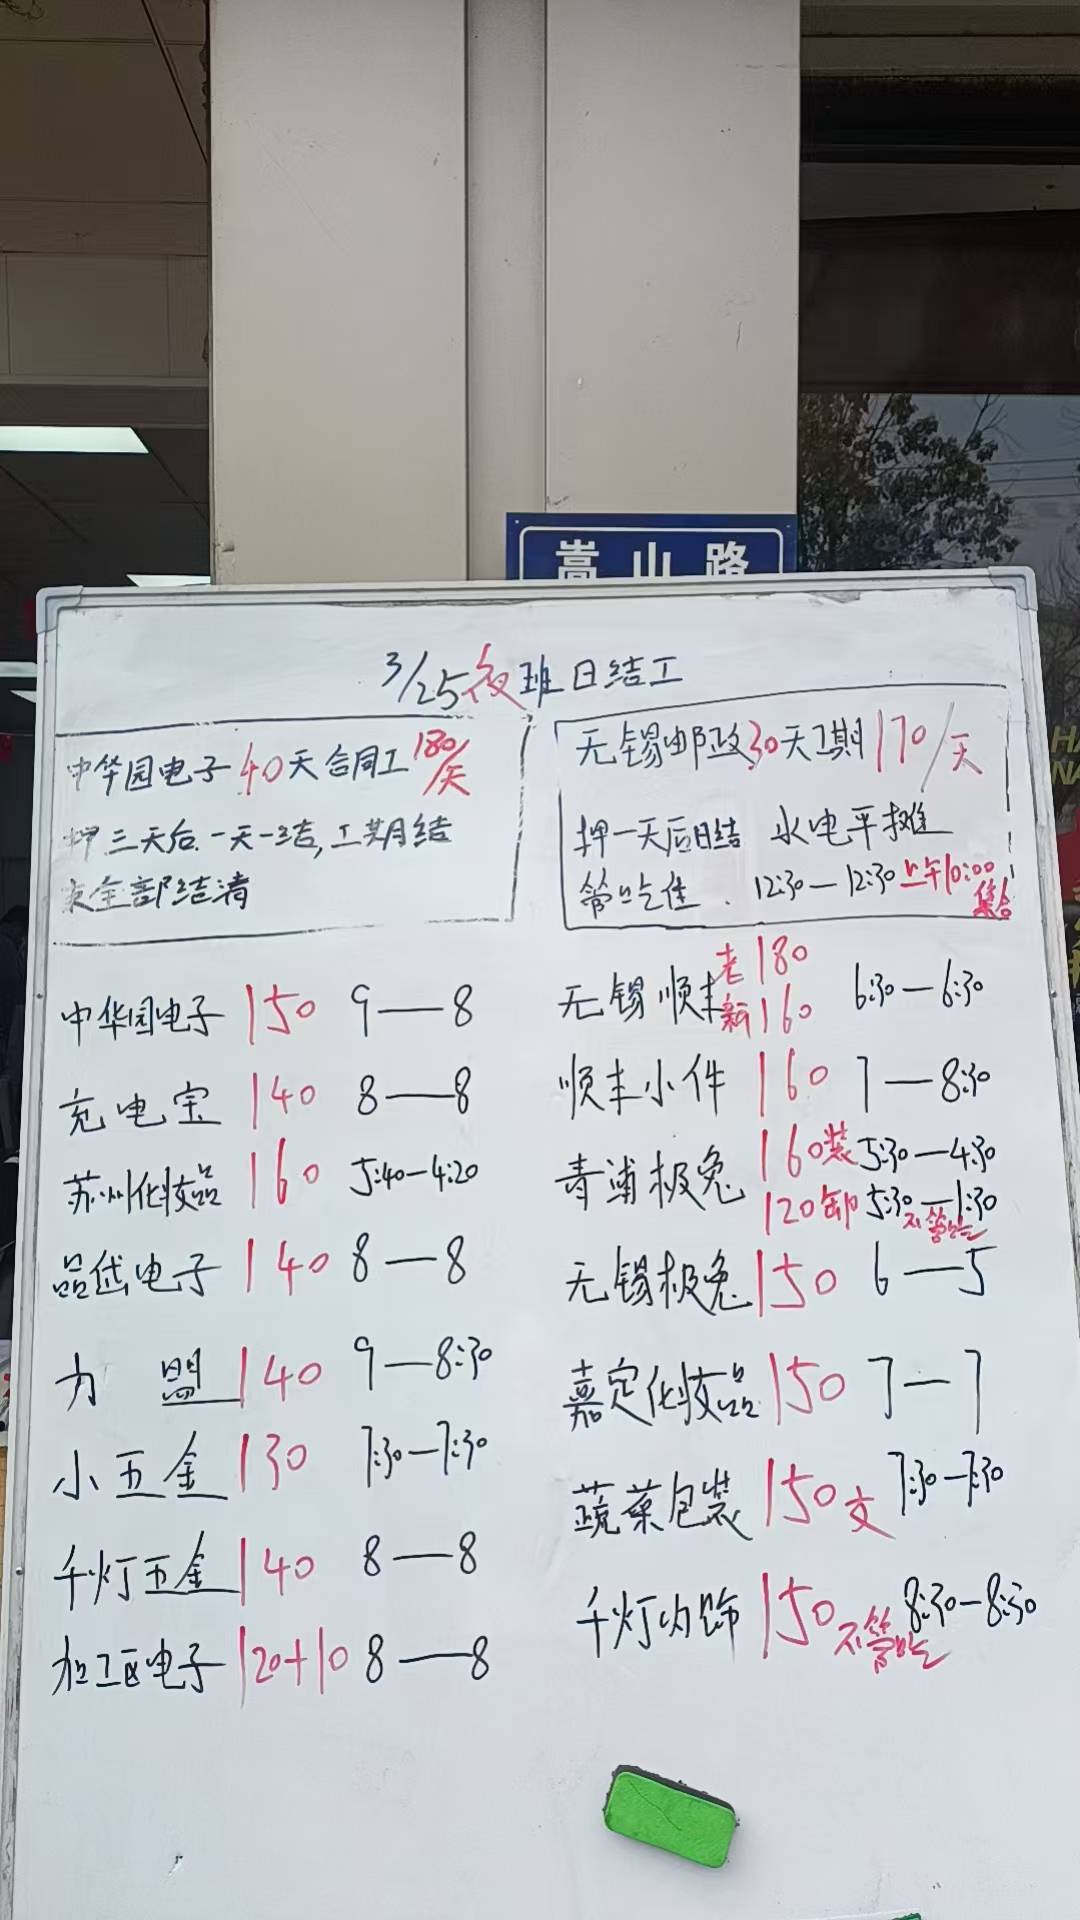 嵩山路
3/25夜班日结工
中华园电子40天合同工180/天
押三天后.一天一结,工期结
束全部结清
无锡邮政30天工期170/天
押一天后日结 水电平摊
管吃住. 12:30—12:30上午10:00
集合
中华园电子 150 9—8
充电宝 140 8—8
苏州化妆品 160 5:40-4:20
品岱电子 140 8—8
力盟 140 9—8:30
小五金 130 7:30—7:30
千灯五金 140 8—8
加工区电子 120+10 8—8
无锡顺丰 老180 新160 6:30—6:30
顺丰小件 160 7—8:30
青浦极兔 160装 5:30—4:30
120卸 5:30—1:30
不管吃
无锡极兔 150 6—5
嘉定化妆品 150 7—7
蔬菜包装 150支 7:30—7:30
千灯内饰 150 不管吃 8:30—8:30